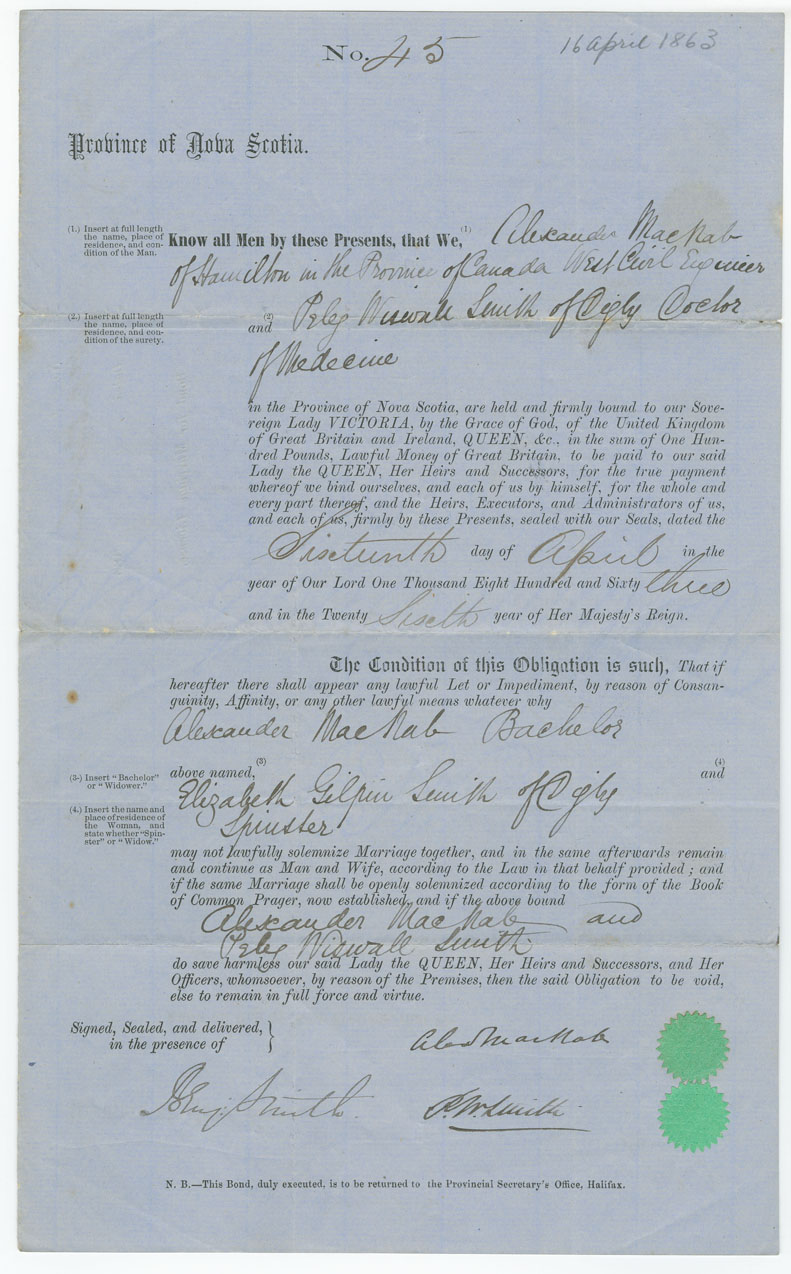 No. 45
16 April 1863
Province of Nova Scotia.
(1.) Insert at full length
the name, place of
residence, and con-
dition of the Man.
Know all Men by these Presents, that We, (1) Alexander MacNab
of Hamilton in the Province of Canada West Civil Engineer
(2.) Insert at full length
the name, place of
residence, and con-
dition of the surety.
and (2) Peleg Wiswall Smith of Digby Doctor
of Medecine
in the Province of Nova Scotia, are held and firmly bound to our Sove-
reign Lady VICTORIA, by the Grace of God, of the United Kingdom
of Great Britain and Ireland, QUEEN, &c., in the sum of One Hun-
dred Pounds, Lawful Money of Great Britain, to be paid to our said
Lady the QUEEN, Her Heirs and Successors, for the true payment
whereof we bind ourselves, and each of us by himself, for the whole and
every part thereof, and the Heirs, Executors, and Administrators of us,
and each of us, firmly by these Presents, sealed with our Seals, dated the
Sixteenth day of April in the
year of Our Lord One Thousand Eight Hundred and Sixty three
and in the Twenty Sixth year of Her Majesty's Reign.
The Condition of this Obligation is such, That if
hereafter there shall appear any lawful Let or Impediment, by reason of Consan-
guinity, Affinity, or any other lawful means whatever why
Alexander MacNab Bachelor
(3.) Insert "Bachelor"
or "Widower."
above named, (3) and (4)
Elizabeth Gilpin Smith of Digby
Spinster
(4.) Insert the name and
place of residence of
the Woman, and
state whether "Spin-
ster" or "Widow."
may not lawfully solemnize Marriage together, and in the same afterwards remain
and continue as Man and Wife, according to the Law in that behalf provided; and
if the same Marriage shall be openly solemnized according to the form of the Book
of Common Prager, now established, and if the above bound
Alexander MacNab and
Peleg Wiswall Smith
do save harmless our said Lady the QUEEN, Her Heirs and Successors, and Her
Officers, whomsoever, by reason of the Premises, then the said Obligation to be void,
else to remain in full force and virtue.
Signed, Sealed, and delivered,
in the presence of
Alex MacNab
Benj Smith
P. W. Smith
N. B.—This Bond, duly executed, is to be returned to the Provincial Secretary's Office, Halifax.